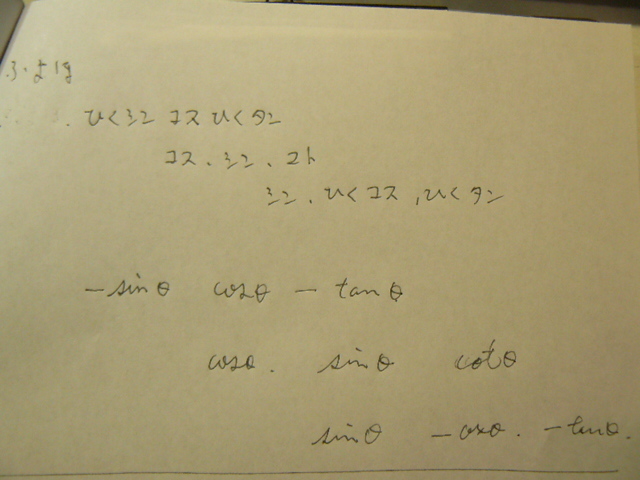 ひくシン コス ひくタン
コス、シン、コト
シン、ひくコス, ひくタン
-sinθ cosθ -tanθ
cosθ. sinθ cotθ
sinθ -cosθ. -tanθ.